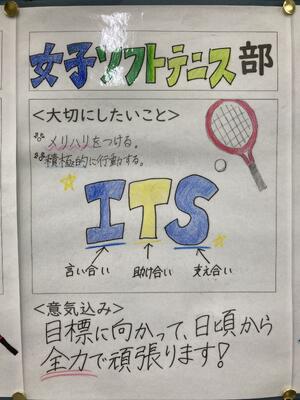 女子ソフトテニス部
<大切にしたいこと>
メリハリをつける。
積極的に行動する。
ITS
言い合い 助け合い 支え合い
<意気込み>
目標に向かって、日頃から
全力で頑張ります!